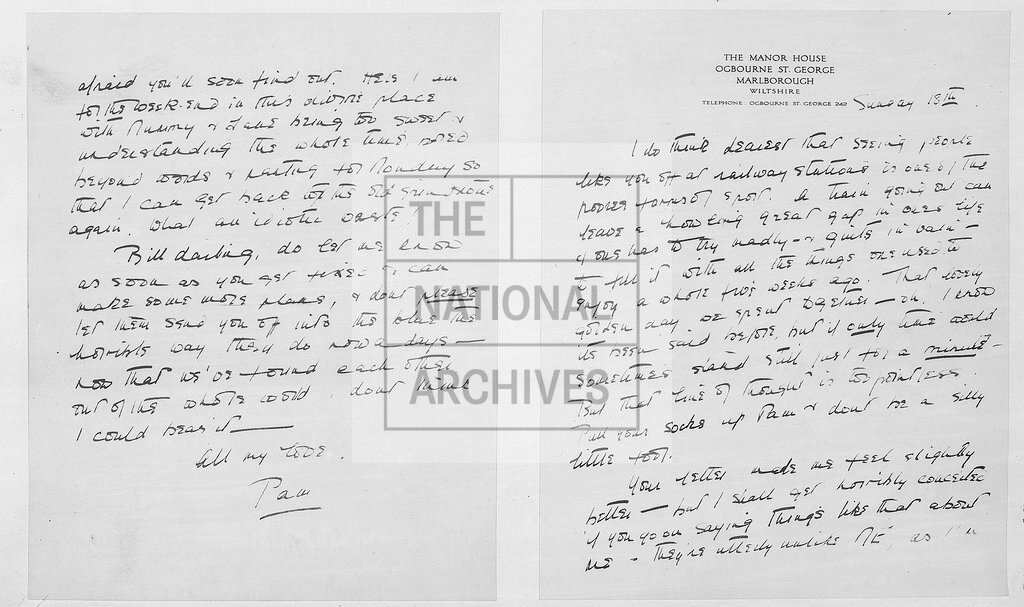 THE MANOR HOUSE
OGBOURNE ST. GEORGE
MARLBOROUGH
WILTSHIRE
TELEPHONE OGBOURNE ST. GEORGE 242 Sunday 18th
I do think dearest that seeing people
like you off at railway stations is one of the
poorer forms of sport. A train going out can
leave a howling great gap in ones life
& one has to try madly - & quite in vain -
to fill it with all the things one used to
enjoy a whole five weeks ago. That lovely
golden day we spent together - oh! I know
its been said before, but if only time could
sometimes stand still just for a minute -
But that line of thought is too pointless.
Pull your socks up Pam & dont be a silly
little fool.
Your letter made me feel slightly
better - but I shall get horribly conceited
if you go on saying things like that about
me - they're utterly unlike ME, as I'm
afraid you'll soon find out. Here I am
for the week-end in this divine place
with Mummy & Jane being too sweet &
understanding the whole time, bored
beyond words & panting for Monday so
that I can get back to the old grindstone
again. What an idiotic waste!
Bill darling, do let me know
as soon as you get fixed & can
make some more plans, & dont please
let them send you off into the blue the
horrible way they do nowadays -
now that we've found each other
out of the whole world, dont think
I could bear it -
All my love.
Pam
THE
NATIONAL
ARCHIVES